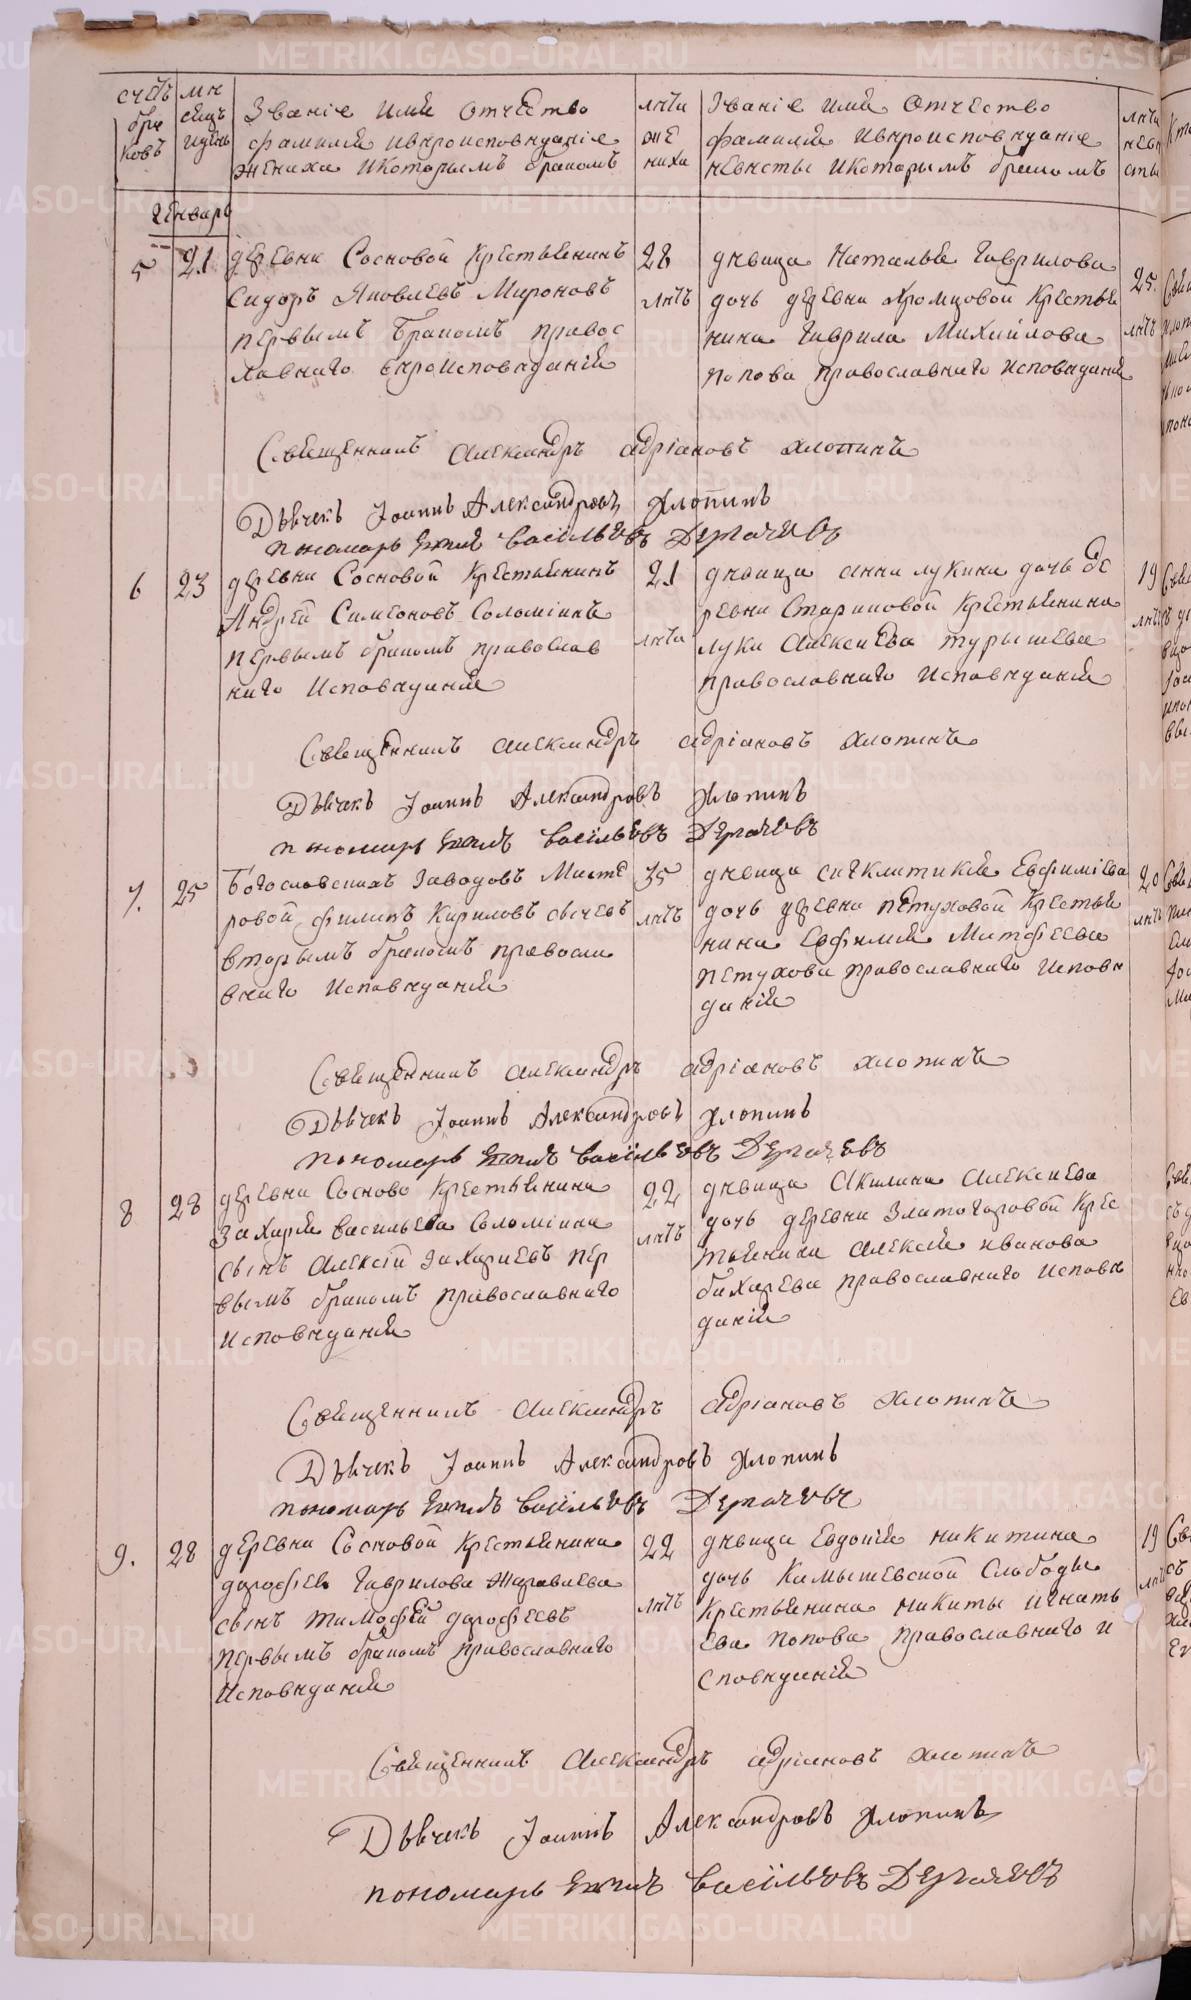 счетъ браковъ
мѣсяцъ и день
Званіе имя отчество
фамилія и вѣроисповѣданіе
жениха и которымъ бракомъ
лѣта жениха
Званіе имя отчество
фамилія и вѣроисповѣданіе
невѣсты и которымъ бракомъ
лѣта невѣсты
Генварь
5
21
деревни Сосновой Крестьянинъ
Сидоръ Яковлевъ Мироновъ
первымъ бракомъ правос
лавнаго вѣроисповѣданія
28
лѣтъ
дѣвица Наталья Гаврилова
дочь деревни Хромцовой Крестья
нина Гаврила Михайлова
попова православнаго исповѣданія
25.
лѣтъ
Священникъ Александръ Адріановъ Хлопинъ
Дьячекъ Іоаннъ Александровъ Хлопинъ
пономарь Васильевъ Дергачевъ
6
23
деревни Сосновой Крестьянинъ
Андрей Симеоновъ Соломіинъ
первымъ бракомъ православ
наго исповѣданія
21
лѣта
дѣвица анна лукина дочь де
ревни Стариковой Крестьянина
луки Алексиева турышева
православнаго исповѣданія
19
лѣтъ
Священникъ Александръ адріановъ хлопинъ
Дьячекъ Іоаннъ Александровъ Хлопинъ
пономарь Васильевъ Дергачевъ
7.
25
Богословскихъ Заводовъ Масте
ровой филипъ Кириловъ сычевъ
вторымъ бракомъ правосла
внаго исповѣданія
35
лѣтъ
дѣвица сигклитикія Евфиміева
дочь деревни петуховой Крестья
нина Евфимія Матфеева
петухова православнаго исповѣ
данія
20
лѣтъ
Священникъ Александръ адріановъ хлопинъ
Дьячекъ Іоаннъ Александровъ Хлопинъ
пономарь Васильевъ Дергачевъ
8
28
деревни Сосново Крестьянина
Захарія васильева Соломіина
сынъ Алексій Захариевъ пер
вымъ бракомъ православнаго
исповѣданія
22
лѣтъ
дѣвица Акилина Алексиева
дочь деревни Златогоровой Крес
тьянина Алексія иванова
бахарева православнаго исповѣ
данія
Священникъ Александръ адріановъ Хлопинъ
Дьячекъ Іоаннъ Александровъ Хлопинъ
пономарь Васильевъ Дергачевъ
9.
28
деревни Сосновой Крестьянина
дорофея Гаврилова Жаравлева
сынъ тимофей дорофеевъ
первымъ бракомъ православнаго
исповѣданія
22
лѣтъ
дѣвица Евдокія никитина
дочь Камышевской Слободы
Крестьянина никиты игнать
ева попова православнаго и
сповѣданія
19
Священникъ Александръ адріановъ хлопинъ
Дьячекъ Іоаннъ Александровъ Хлопинъ
пономарь Васильевъ Дергачевъ
METRIKI.GASO-URAL.RU